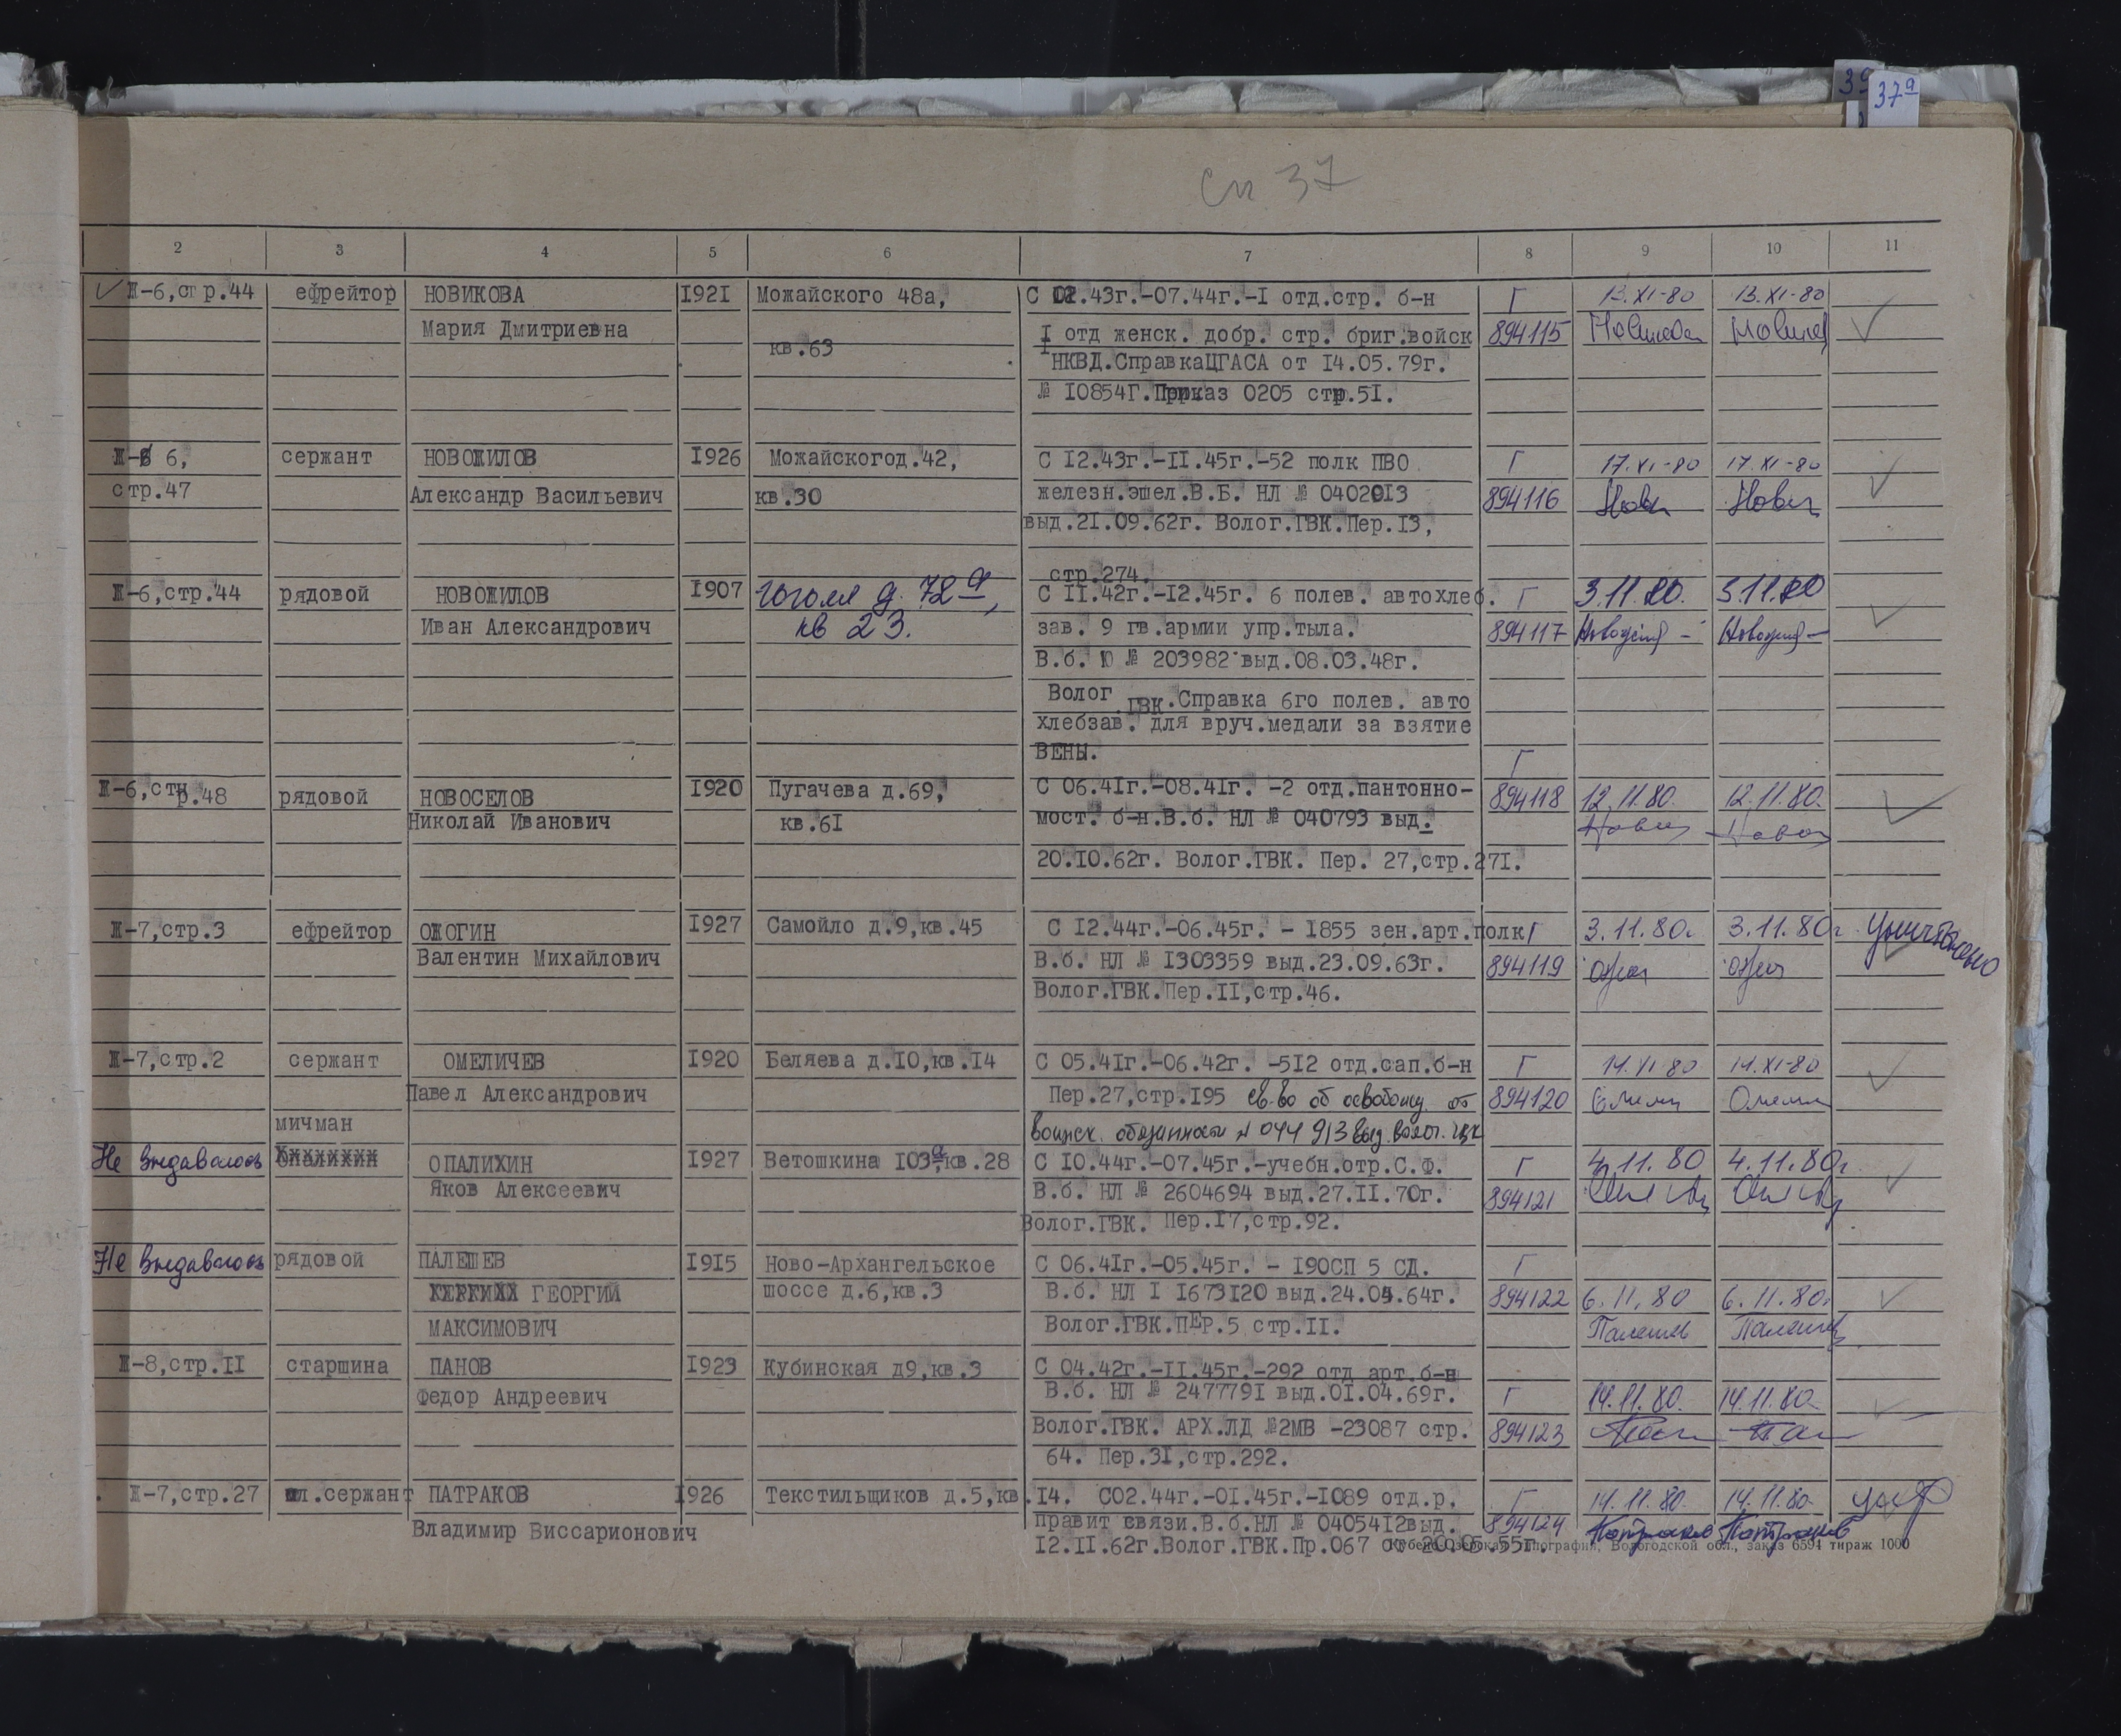 37а
сп 37
2 3 4 5 6 7 8 9 10 11
Ж-6,стр.44 ефрейтор НОВИКОВА 1921 Можайского 48а, С 02.43г.-07.44г.-I отд.стр. б-н Г 13.XI-80 13.XI-80
Мария Дмитриевна I отд женск. добр. стр. бриг.войск 894115
кв.63
НКВД.СправкаЦГАСА от 14.05.79г.
№ 10854Г.Приказ 0205 стр.51.
Ж- 6, сержант НОВОЖИЛОВ 1926 Можайскогод.42, С 12.43г.-11.45г.-52 полк ПВО Г 17.XI-80 17.XI-80
стр.47 Александр Васильевич кв.30 железн.эшел.В.Б. НЛ № 0402013 894116
выд.21.09.62г. Волог.ГВК.Пер.13,
стр.274.
Ж-6,стр.44 рядовой НОВОЖИЛОВ 1907 Гоголя д. 72а, С 11.42г.-12.45г. 6 полев. автохлеб. Г 3.11.80. 3.11.80
Иван Александрович кв 23. зав. 9 гв.армии упр.тыла. 894117
В.б. Ю № 203982 выд.08.03.48г.
Волог.ГВК.Справка 6го полев. авто
хлебзав. для вруч.медали за взятие
ВЕНЫ. Г
Ж-6,стр.48 рядовой НОВОСЕЛОВ 1920 Пугачева д.69, С 06.41г.-08.41г. -2 отд.пантонно- 894118 12.11.80. 12.11.80.
Николай Иванович кв.61 мост. б-н.В.б. НЛ № 040793 выд.
20.10.62г. Волог.ГВК. Пер. 27,стр.271.
Ж-7,стр.3 ефрейтор ОЖОГИН 1927 Самойло д.9,кв.45 С 12.44г.-06.45г. - 1855 зен.арт.полк Г 3.11.80г 3.11.80г Уничтожено
Валентин Михайлович В.б. НЛ № 1303359 выд.23.09.63г. 894119
Волог.ГВК.Пер.11,стр.46.
Ж-7,стр.2 сержант ОМЕЛИЧЕВ 1920 Беляева д.10,кв.14 С 05.41г.-06.42г. -512 отд.сап.б-н Г 14.XI-80 14.XI-80
Павел Александрович Пер.27,стр.195 св-во об освобожд. от 894120
мичман воинск. обязанности № 044913 выд. волог.
Не выдавалось Опалихин ОПАЛИХИН 1927 Ветошкина 103а,кв.28 С 10.44г.-07.45г.-учебн.отр.С.Ф. Г 4.11.80 4.11.80г
Яков Алексеевич В.б. НЛ № 2604694 выд.27.11.70г. 894121
Волог.ГВК. Пер.17,стр.92.
Не выдавалось рядовой ПАЛЕШЕВ 1915 Ново-Архангельское С 06.41г.-05.45г. - 190СП 5 СД. Г
ГЕОРГИЙ шоссе д.6,кв.3 В.б. НЛ I 1673120 выд.24.04.64г. 894122 6.11.80 6.11.80г
МАКСИМОВИЧ Волог.ГВК.ПЕР.5 стр.11. Палешев Палешев
Ж-8,стр.11 старшина ПАНОВ 1923 Кубинская д9,кв.3 С 04.42г.-11.45г.-292 отд арт.б-н
Федор Андреевич В.б. НЛ № 2477791 выд.01.04.69г. Г 14.11.80. 14.11.80.
Волог.ГВК. АРХ.ЛД №2МВ -23087 стр. 894123
64. Пер.31,стр.292.
Ж-7,стр.27 мл.сержант ПАТРАКОВ 1926 Текстильщиков д.5,кв.14. С02.44г.-01.45г.-1089 отд.р. Г 14.11.80. 14.11.80.
Владимир Виссарионович правит связи.В.б.НЛ № 0405412выд. 894124 Патраков Патраков
12.11.62г.Волог.ГВК.Пр.067 от 20.05.55г.
Кубено-Озерская типография, Вологодской обл., заказ 6594 тираж 1000